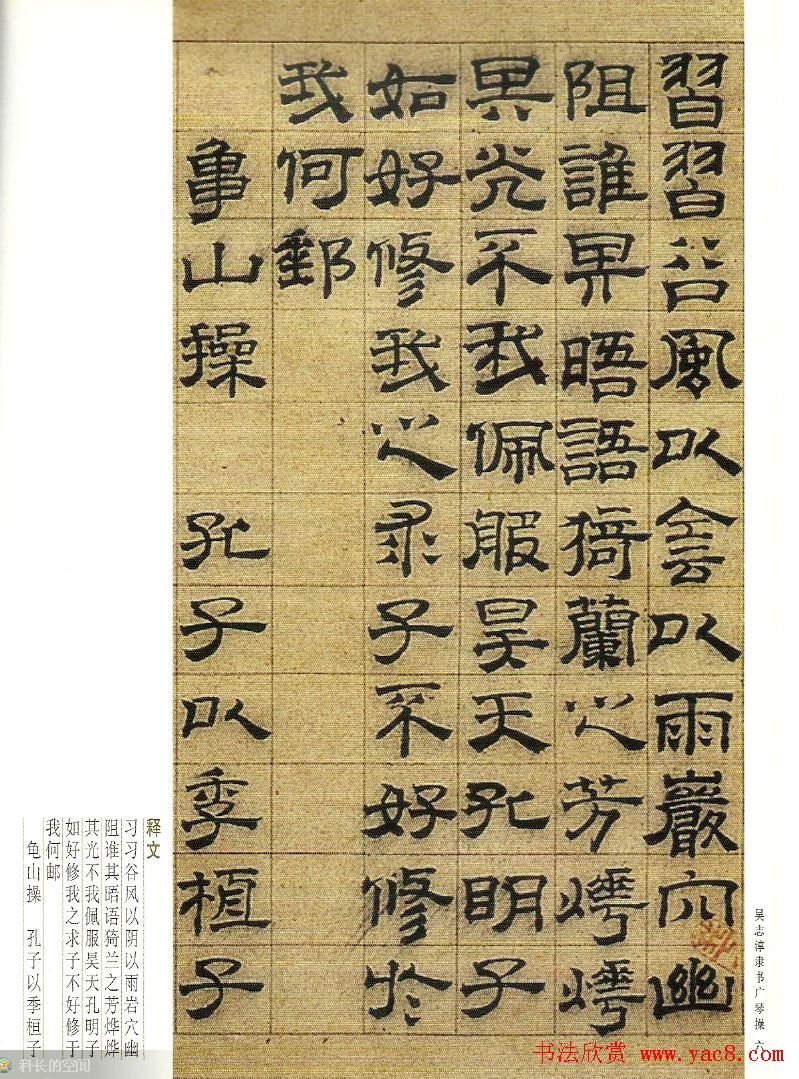 習習谷風以侌以雨巖穴幽
阻誰其晤語猗蘭之芳燁燁
其光不我佩服昊天孔明子
如好修我之求子不好修於
我何郵
龜山操 孔子以季桓子
释文
习习谷风以阴以雨岩穴幽
阻谁其晤语猗兰之芳烨烨
其光不我佩服昊天孔明子
如好修我之求子不好修于
我何邮
龟山操 孔子以季桓子
吴志淳隶书广琴操 六
书法欣赏 www.yac8.com
科长的空间